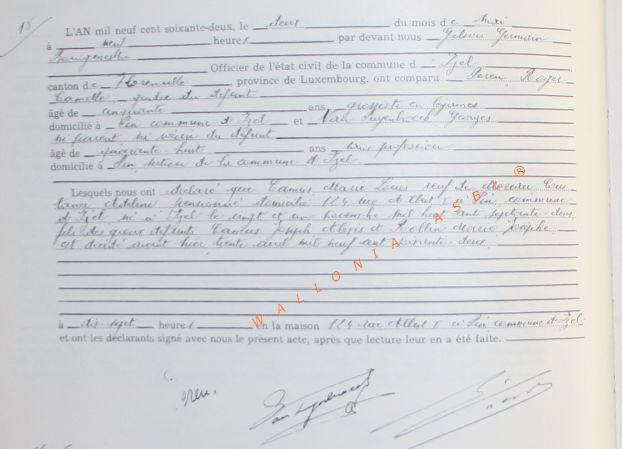 15
L'AN mil neuf cent soixante-deux, le deux du mois de Mai
à neuf heures par devant nous Gérin Germain
Bourgmestre
Officier de l'état civil de la commune d'Izel
canton de Florenville province de Luxembourg, ont comparu Roger
Camille gendre du défunt
âgé de cinquante ans, grossiste en légumes
domicilié à Pin commune d'Izel et Georges
ni parent ni voisin du défunt
âgé de quarante huit ans sans profession
domicilié à Pin section de la commune d'Izel
Lesquels nous ont déclaré que Camus Marie Louis veuf de
Adeline pensionné domicilié 124 rue Albert I à Pin, commune
d'Izel né à Izel le vingt et un novembre mil huit cent septante deux
fils des époux défunts Camus Joseph Alexis et Rollin Marie Josephe
est décédé avant hier trente avril mil neuf cent soixante deux
à dix sept heures en la maison 124 rue Albert I à Pin commune d'Izel
et ont les déclarants signé avec nous le présent acte, après que lecture leur en a été faite.
WALLONIA ASBL ®